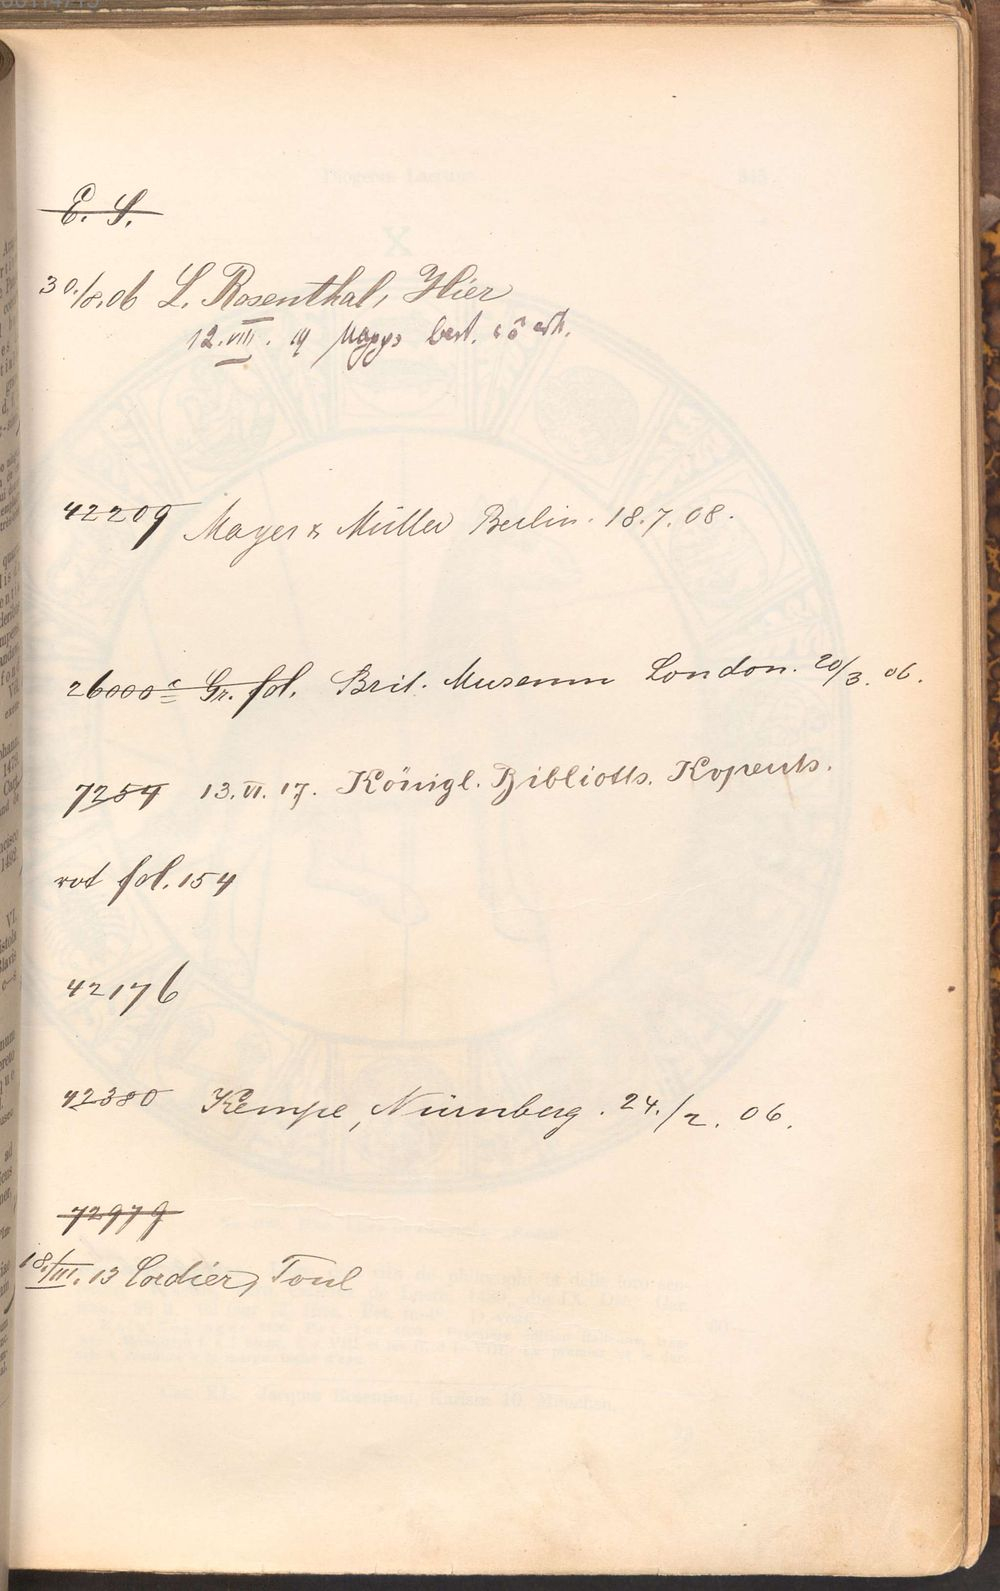 E. S.
30./8.06 L. Rosenthal, Hier
12. VIII. 19 best.
42209 Mayer & Müller Berlin. 18.7.08.
26000 Gr. fol. Brit. Museum London. 20/3. 06.
7254 13.VI.17. Königl. Biblioth. Kopenh.
rot fol. 154
42176
42380 Kempe, Nürnberg. 24./2. 06.
72979
18./III. 13 Cordier, Toul